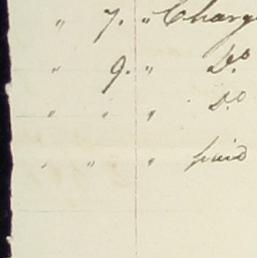 " 7. " Charg
" 9. " Do
" " " Do
" " " paid